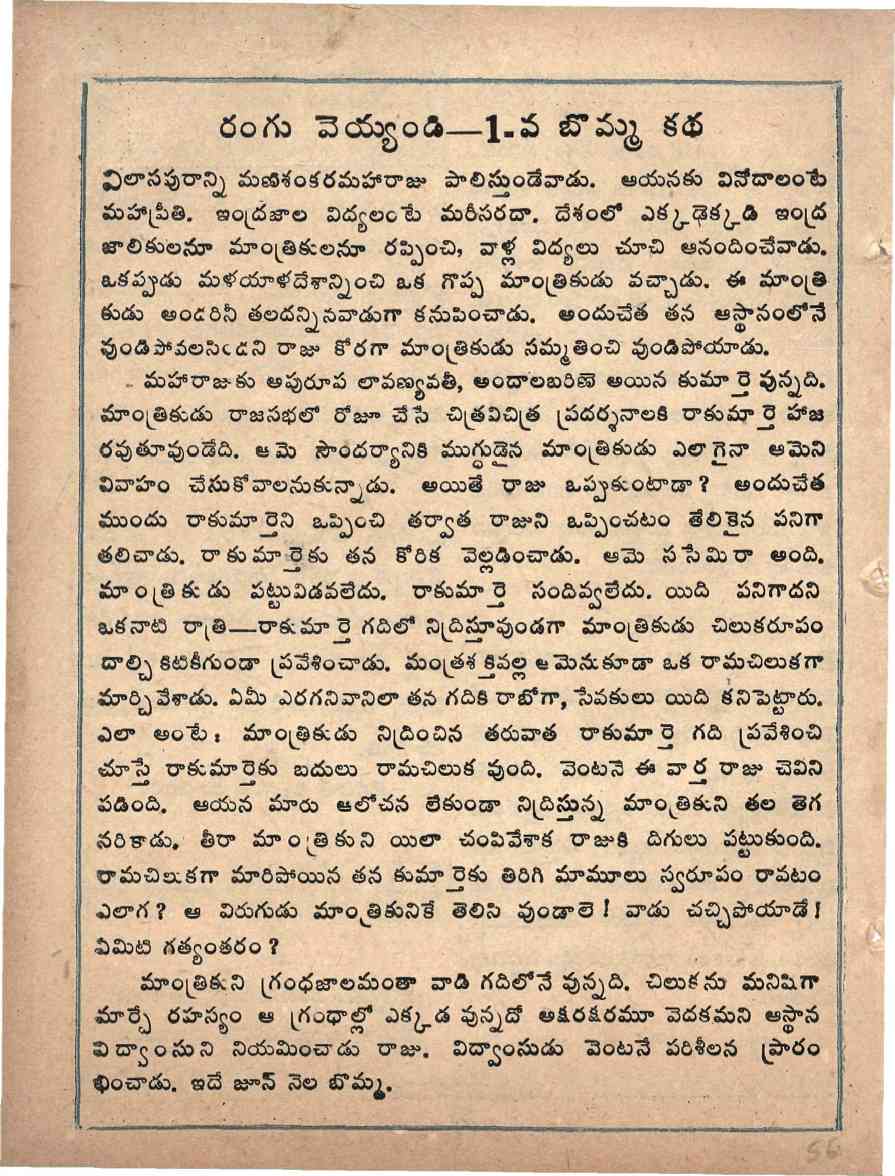 రంగు వెయ్యండి—1-వ బొమ్మ కథ
విలాసపురాన్ని మణిశంకరమహారాజు పాలిస్తుండేవాడు. ఆయనకు వినోదాలంటే
మహాప్రీతి. ఇంద్రజాల విద్యలంటే మరీసరదా. దేశంలో ఎక్కడెక్కడి ఇంద్ర
జాలికులనూ మాంత్రికులనూ రప్పించి, వాళ్ల విద్యలు చూచి ఆనందించేవాడు.
ఒకప్పుడు మళయాళదేశాన్నించి ఒక గొప్ప మాంత్రికుడు వచ్చాడు. ఈ మాంత్రి
కుడు అందరినీ తలదన్నినవాడుగా కనుపించాడు. అందుచేత తన ఆస్థానంలోనే
వుండిపోవలసిందని రాజు కోరగా మాంత్రికుడు సమ్మతించి వుండిపోయాడు.
మహారాజుకు అపురూప లావణ్యవతీ, అందాలబరిణె అయిన కుమార్తె వున్నది.
మాంత్రికుడు రాజసభలో రోజూ చేసే చిత్రవిచిత్ర ప్రదర్శనాలకి రాకుమార్తె హాజ
రవుతూవుండేది. ఆమె సౌందర్యానికి ముగ్ధుడైన మాంత్రికుడు ఎలాగైనా ఆమెని
వివాహం చేసుకోవాలనుకున్నాడు. అయితే రాజు ఒప్పుకుంటాడా? అందుచేత
ముందు రాకుమార్తెని ఒప్పించి తర్వాత రాజుని ఒప్పించటం తేలికైన పనిగా
తలిచాడు. రాకుమార్తెకు తన కోరిక వెల్లడించాడు. ఆమె ససేమిరా అంది.
మాంత్రికుడు పట్టువిడవలేదు. రాకుమార్తె సందివ్వలేదు. యిది పనిగాదని
ఒకనాటి రాత్రి—రాకుమార్తె గదిలో నిద్రిస్తూవుండగా మాంత్రికుడు చిలుకరూపం
దాల్చి కిటికీగుండా ప్రవేశించాడు. మంత్రశక్తివల్ల ఆమెనుకూడా ఒక రామచిలుకగా
మార్చివేశాడు. ఏమీ ఎరగనివానిలా తన గదికి రాబోగా, సేవకులు యిది కనిపెట్టారు.
ఎలా అంటే: మాంత్రికుడు నిద్రించిన తరువాత రాకుమార్తె గది ప్రవేశించి
చూస్తే రాకుమార్తెకు బదులు రామచిలుక వుంది. వెంటనె ఈ వార్త రాజు చెవిని
పడింది. ఆయన మారు ఆలోచన లేకుండా నిద్రిస్తున్న మాంత్రికుని తల తెగ
నరికాడు. తీరా మాంత్రికుని యిలా చంపివేశాక రాజుకి దిగులు పట్టుకుంది.
రామచిలుకగా మారిపోయిన తన కుమార్తెకు తిరిగి మామూలు స్వరూపం రావటం
ఎలాగ? ఆ విరుగుడు మాంత్రికునికే తెలిసి వుండాలె! వాడు చచ్చిపోయాడే!
ఏమిటి గత్యంతరం?
మాంత్రికుని గ్రంధజాలమంతా వాడి గదిలోనే వున్నది. చిలుకను మనిషిగా
మార్చే రహస్యం ఆ గ్రంధాల్లో ఎక్కడ వున్నదో అక్షరక్షరమూ వెదకమని ఆస్థాన
విద్వాంసుని నియమించాడు రాజు. విద్వాంసుడు వెంటనే పరిశీలన ప్రారం
భించాడు. ఇదే జూన్ నెల బొమ్మ.
56